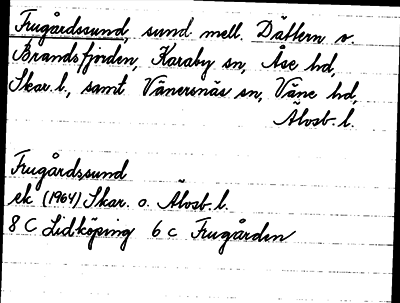 Frugårdssund, sund mell. Dättern o.
Brandsfjorden, Karaby sn, Åse hd,
Skar. l., samt Vänersnäs sn, Väne hd,
Älvsb. l.
Frugårdssund
ek (1964) Skar. o. Älvsb. l.
8 C Lidköping 6 c Frugården